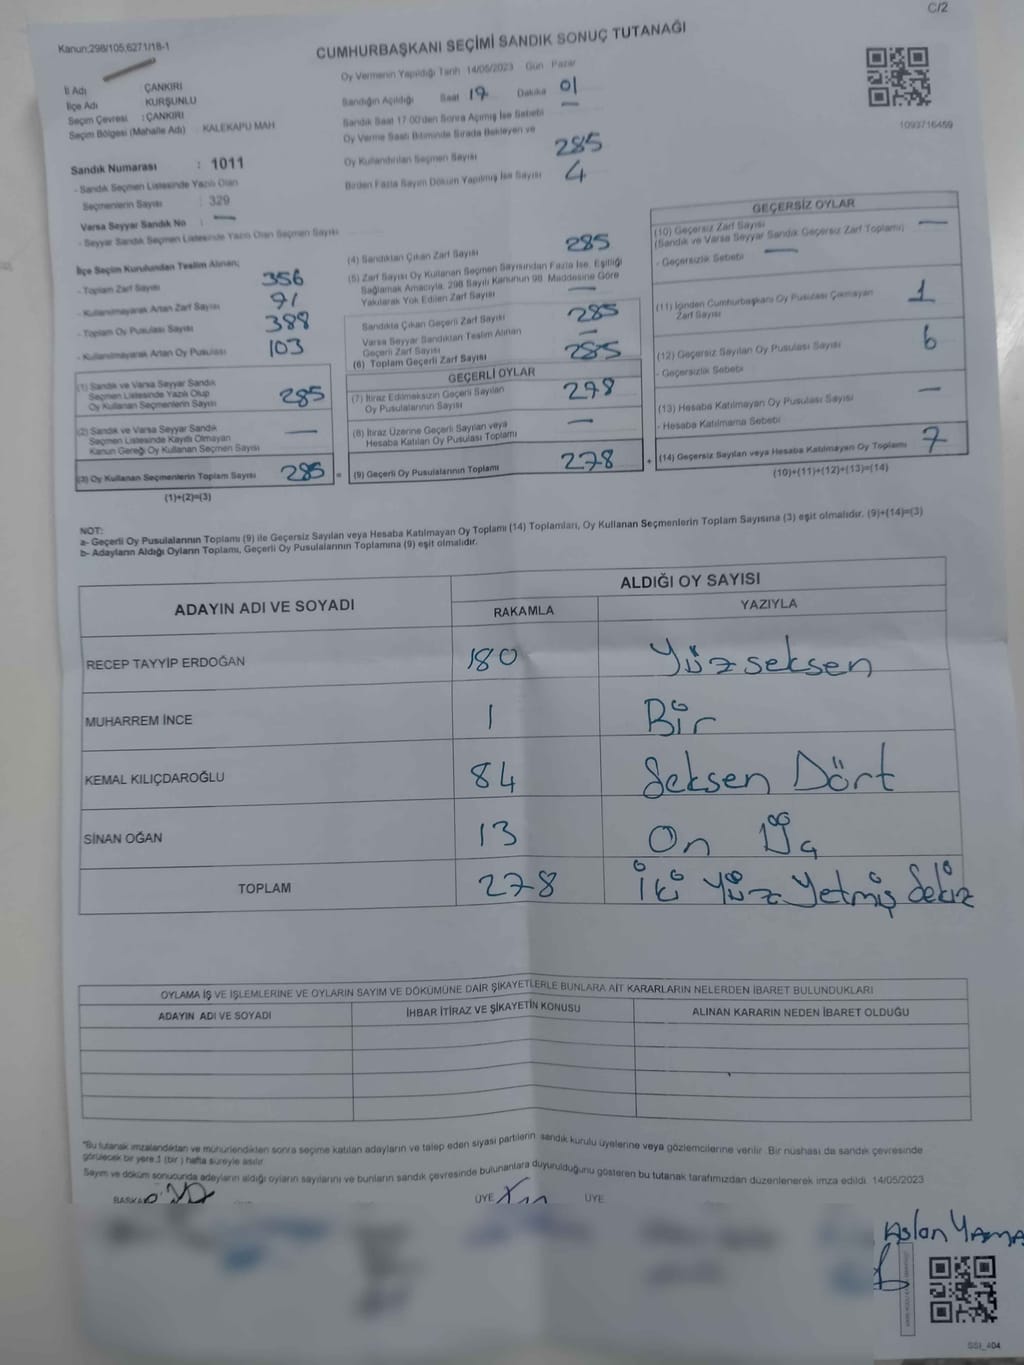 C/2
Kanun:298/105,6271/18-1
CUMHURBAŞKANI SEÇİMİ SANDIK SONUÇ TUTANAĞI
İl Adı ÇANKIRI
İlçe Adı KURŞUNLU
Seçim Çevresi : ÇANKIRI
Seçim Bölgesi (Mahalle Adı) : KALEKAPU MAH
Sandık Numarası : 1011
- Sandık Seçmen Listesinde Yazılı Olan
Seçmenlerin Sayısı : 329
Varsa Seyyar Sandık No : —
- Seyyar Sandık Seçmen Listesinde Yazılı Olan Seçmen Sayısı
Oy Vermenin Yapıldığı Tarih 14/05/2023 Gün Pazar
Sandığın Açıldığı Saat 17 Dakika 01
Sandık Saat 17.00'den Sonra Açılmış İse Sebebi —
Oy Verme Saati Bitiminde Sırada Bekleyen ve
Oy Kullandırılan Seçmen Sayısı 285
Birden Fazla Sayım Döküm Yapılmış İse Sayısı 4
1093716459
İlçe Seçim Kurulundan Teslim Alınan;
- Toplam Zarf Sayısı 356
- Kullanılmayarak Artan Zarf Sayısı 71
- Toplam Oy Pusulası Sayısı 388
- Kullanılmayarak Artan Oy Pusulası 103
(1) Sandık ve Varsa Seyyar Sandık
Seçmen Listesinde Yazılı Olup
Oy Kullanan Seçmenlerin Sayısı 285
(2) Sandık ve Varsa Seyyar Sandık
Seçmen Listesinde Kayıtlı Olmayan
Kanun Gereği Oy Kullanan Seçmen Sayısı —
(3) Oy Kullanan Seçmenlerin Toplam Sayısı 285 =
(1)+(2)=(3)
(4) Sandıktan Çıkan Zarf Sayısı 285
(5) Zarf Sayısı Oy Kullanan Seçmen Sayısından Fazla İse, Eşitliği
Sağlamak Amacıyla, 298 Sayılı Kanunun 98. Maddesine Göre
Yakılarak Yok Edilen Zarf Sayısı —
Sandıkta Çıkan Geçerli Zarf Sayısı 285
Varsa Seyyar Sandıktan Teslim Alınan
Geçerli Zarf Sayısı —
(6) Toplam Geçerli Zarf Sayısı 285
GEÇERLİ OYLAR
(7) İtiraz Edilmeksizin Geçerli Sayılan
Oy Pusulalarının Sayısı 278
(8) İtiraz Üzerine Geçerli Sayılan veya
Hesaba Katılan Oy Pusulası Toplamı —
(9) Geçerli Oy Pusulalarının Toplamı 278 +
GEÇERSİZ OYLAR
(10) Geçersiz Zarf Sayısı —
(Sandık ve Varsa Seyyar Sandık Geçersiz Zarf Toplamı)
- Geçersizlik Sebebi —
(11) İçinden Cumhurbaşkanı Oy Pusulası Çıkmayan
Zarf Sayısı 1
(12) Geçersiz Sayılan Oy Pusulası Sayısı 6
- Geçersizlik Sebebi
(13) Hesaba Katılmayan Oy Pusulası Sayısı —
- Hesaba Katılmama Sebebi
(14) Geçersiz Sayılan veya Hesaba Katılmayan Oy Toplamı 7
(10)+(11)+(12)+(13)=(14)
NOT:
a- Geçerli Oy Pusulalarının Toplamı (9) ile Geçersiz Sayılan veya Hesaba Katılmayan Oy Toplamı (14) Toplamları, Oy Kullanan Seçmenlerin Toplam Sayısına (3) eşit olmalıdır. (9)+(14)=(3)
b- Adayların Aldığı Oyların Toplamı, Geçerli Oy Pusulalarının Toplamına (9) eşit olmalıdır.
ADAYIN ADI VE SOYADI ALDIĞI OY SAYISI
RAKAMLA YAZIYLA
RECEP TAYYİP ERDOĞAN 180 Yüzseksen
MUHARREM İNCE 1 Bir
KEMAL KILIÇDAROĞLU 84 Seksen Dört
SİNAN OĞAN 13 On Üç
TOPLAM 278 İki Yüz Yetmiş Sekiz
OYLAMA İŞ VE İŞLEMLERİNE VE OYLARIN SAYIM VE DÖKÜMÜNE DAİR ŞİKAYETLERLE BUNLARA AİT KARARLARIN NELERDEN İBARET BULUNDUKLARI
ADAYIN ADI VE SOYADI İHBAR İTİRAZ VE ŞİKAYETİN KONUSU ALINAN KARARIN NEDEN İBARET OLDUĞU
*Bu tutanak imzalandıktan ve mühürlendikten sonra seçime katılan adayların ve talep eden siyasi partilerin sandık kurulu üyelerine veya gözlemcilerine verilir. Bir nüshası da sandık çevresinde
görülecek bir yere 1 (bir ) hafta süreyle asılır.
Sayım ve döküm sonucunda adayların aldığı oyların sayılarını ve bunların sandık çevresinde bulunanlara duyurulduğunu gösteren bu tutanak tarafımızdan düzenlenerek imza edildi. 14/05/2023
BAŞKAN ÜYE ÜYE
Aslan YAMA
SSI_404